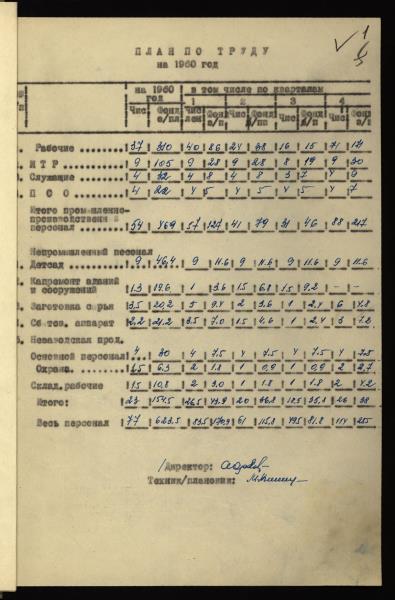 ПЛАН ПО ТРУДУ
на 1960 год
на 1960 год
в том числе по кварталам
1 2 3 4
Чис Фонд з/пл Чис лен Фонд з/п Чис Фонд з/пп Чис Фонд з/п Чис Фонд з/п
Рабочие 37 310 40 86 24 38 16 15 71 171
И Т Р 9 105 9 28 9 28 8 19 9 30
Служащие 4 32 4 8 4 8 3 7 4 9
П С О 4 22 4 5 4 5 4 5 4 7
Итого промышленно-
производственный
персонал 54 469 57 127 41 79 31 46 88 217
Непромышленный песонал
Детсад 9 46,4 9 11.6 9 11.6 9 11.6 9 11.6
Капремонт зданий
и сооружений 1.3 19.6 1 3.6 1.5 6.8 1.5 9.2 - -
Заготовка сырья 3,5 20.2 5 9.4 2 3.6 1 2,4 6 4.8
Сбытов. аппарат 2,2 21.2 3.5 7.0 1.5 4.6 1 2,4 3 7.2
Незаводская прод.
Основной персонал 4 30 4 7.5 4 7.5 4 7.5 4 7.5
Охрана 1.5 6.3 2 1.8 1 0,9 1 0.9 2 2.7
Склад.рабочие 1.5 10.8 2 3.0 1 1.8 1 1.8 2 4.2
Итого: 23 154.5 26.5 43.9 20 36.8 18.5 35,8 26 38
Весь персонал 77 623.5 83.5 170.9 61 115.8 49.5 81.8 114 255
Директор:
Техник/плановик: